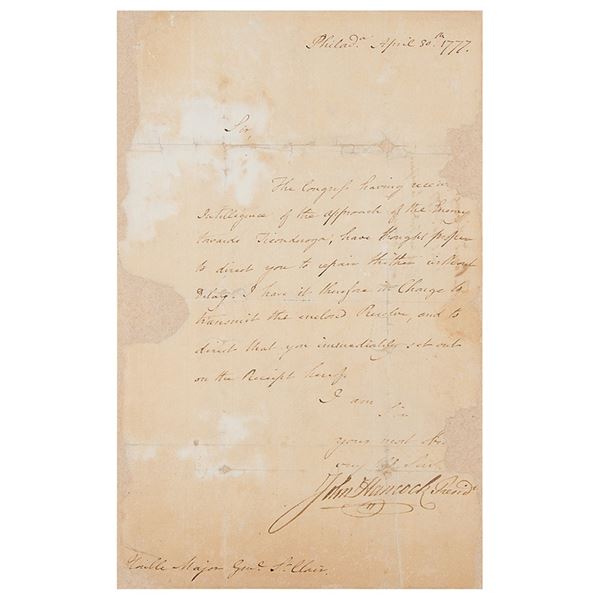 Philad.a April 30.th 1777.
Sir,
The Congress having receiv
Intelligence of the approach of the Enemy
towards Ticonderoga, have thought proper
to direct you to repair thither without
Delay. I have it therefore in Charge to
transmit the enclosed Resolve, and to
direct that you immediately set out
on the Receipt hereof.
I am
Sir
your most
Serv.
John Hancock Presid.t
Honble Major Genl. St. Clair.